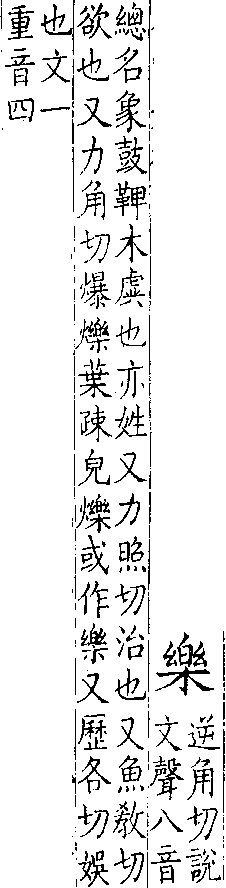 樂
逆角切說
文聲八音
總名象鼓鞞木虡也亦姓又力照切治也又魚教切
欲也又力角切爆爍葉疎皃爍或作樂又歷各切娛
也文一
重音四